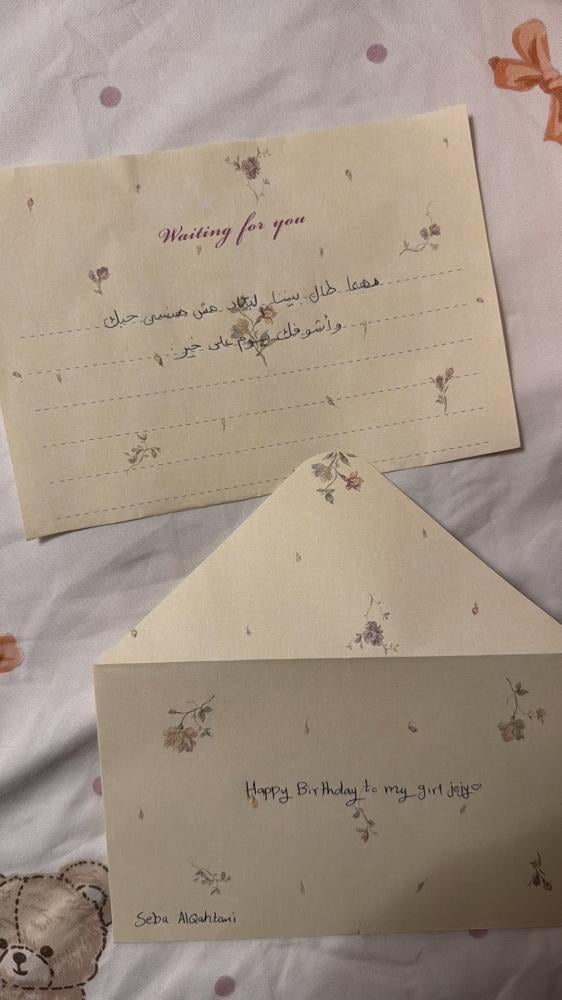 Waiting for you
مهما طال بيننا لبعاد مش هنسى حبك
وأشوفك يوم على خير
Happy Birthday to my girl jejy♡
Seba AlQahtani